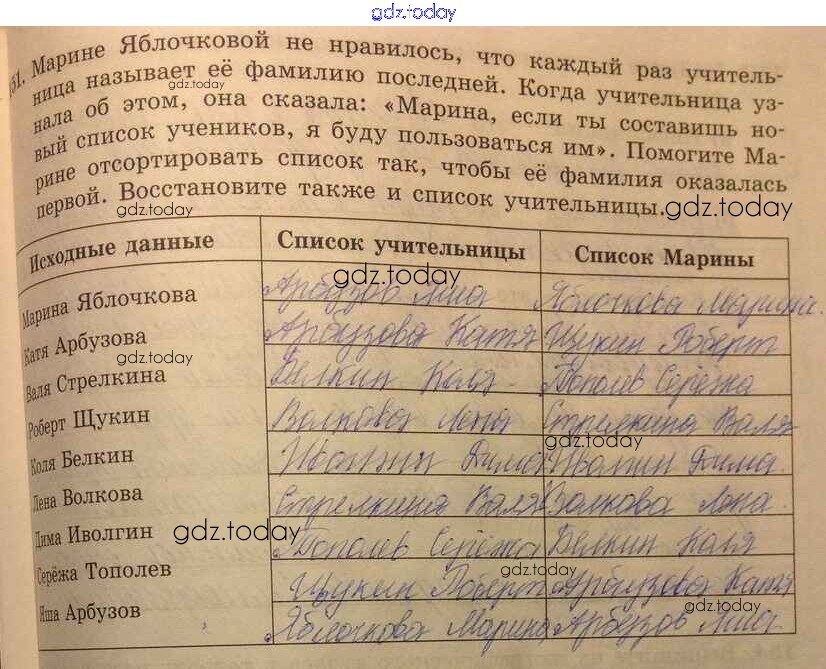 gdz.today
51. Марине Яблочковой не нравилось, что каждый раз учитель-
ница называет её фамилию последней. Когда учительница уз-
gdz.today
нала об этом, она сказала: «Марина, если ты составишь но-
вый список учеников, я буду пользоваться им». Помогите Ма-
рине отсортировать список так, чтобы её фамилия оказалась
первой. Восстановите также и список учительницы.
gdz.today
gdz.today
Исходные данные Список учительницы Список Марины
gdz.today
Марина Яблочкова Арбузов Яша Яблочкова Марина.
Катя Арбузова Арбузова Катя Щукин Роберт
gdz.today
Валя Стрелкина Белкин Коля Тополев Серёжа
Роберт Щукин Волкова Лена Стрелкина Валя
gdz.today
Коля Белкин Дима Дима.
Лена Волкова Стрелкина Валя Волкова Лена.
Дима Иволгин Тополев Серёжа Белкин Коля
gdz.today
gdz.today
Серёжа Тополев Щукин Роберт Арбузова Катя
gdz.today
Яша Арбузов Яблочкова Марина Арбузов Яша.